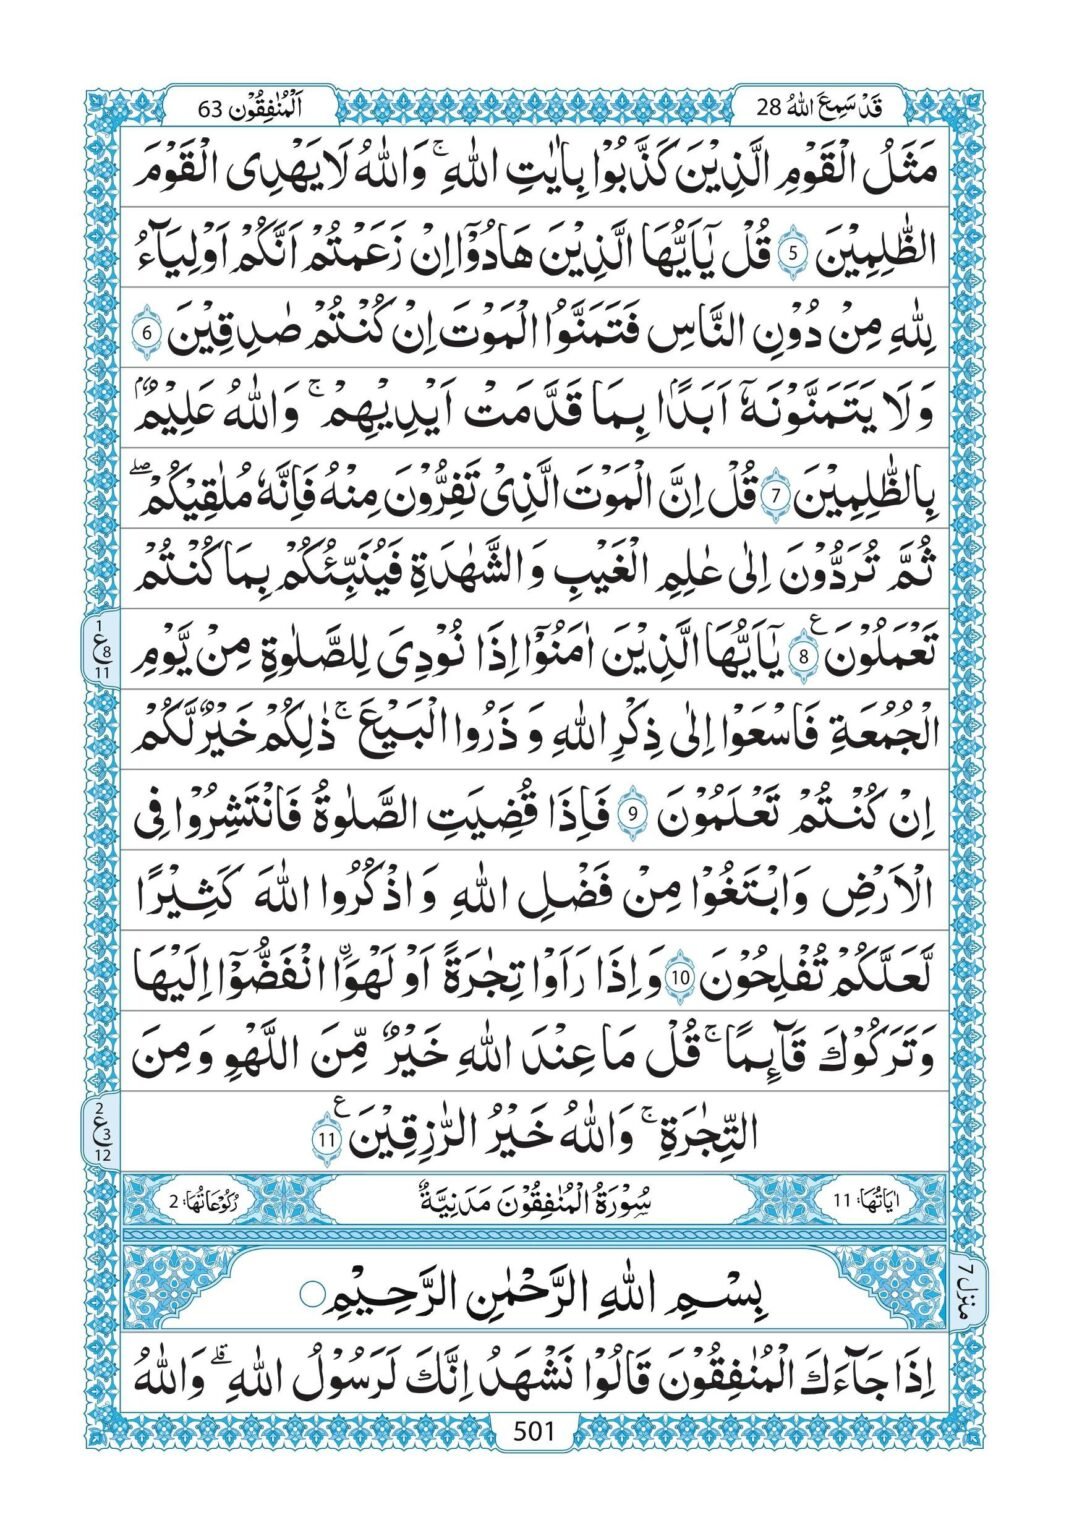 قَدْ سَمِعَ اللّٰهُ 28
اَلْمُنٰفِقُوْن 63
مَثَلُ الْقَوْمِ الَّذِيْنَ كَذَّبُوْا بِاٰيٰتِ اللّٰهِ ۚ وَاللّٰهُ لَا يَهْدِى الْقَوْمَ
الظّٰلِمِيْنَ 5 قُلْ يٰٓاَيُّهَا الَّذِيْنَ هَادُوْٓا اِنْ زَعَمْتُمْ اَنَّكُمْ اَوْلِيَآءُ
لِلّٰهِ مِنْ دُوْنِ النَّاسِ فَتَمَنَّوُا الْمَوْتَ اِنْ كُنْتُمْ صٰدِقِيْنَ 6
وَلَا يَتَمَنَّوْنَهٗٓ اَبَدًۢا بِمَا قَدَّمَتْ اَيْدِيْهِمْ ۚ وَاللّٰهُ عَلِيْمٌۢ
بِالظّٰلِمِيْنَ 7 قُلْ اِنَّ الْمَوْتَ الَّذِىْ تَفِرُّوْنَ مِنْهُ فَاِنَّهٗ مُلٰقِيْكُمْ ۖ
ثُمَّ تُرَدُّوْنَ اِلٰى عٰلِمِ الْغَيْبِ وَالشَّهٰدَةِ فَيُنَبِّئُكُمْ بِمَا كُنْتُمْ
تَعْمَلُوْنَ ع 8 يٰٓاَيُّهَا الَّذِيْنَ اٰمَنُوْٓا اِذَا نُوْدِىَ لِلصَّلٰوةِ مِنْ يَّوْمِ
1
ع 8
11
الْجُمُعَةِ فَاسْعَوْا اِلٰى ذِكْرِ اللّٰهِ وَذَرُوا الْبَيْعَ ۚ ذٰلِكُمْ خَيْرٌ لَّكُمْ
اِنْ كُنْتُمْ تَعْلَمُوْنَ 9 فَاِذَا قُضِيَتِ الصَّلٰوةُ فَانْتَشِرُوْا فِى
الْاَرْضِ وَابْتَغُوْا مِنْ فَضْلِ اللّٰهِ وَاذْكُرُوا اللّٰهَ كَثِيْرًا
لَّعَلَّكُمْ تُفْلِحُوْنَ 10 وَاِذَا رَاَوْا تِجٰرَةً اَوْ لَهْوَا۟ انْفَضُّوْٓا اِلَيْهَا
وَتَرَكُوْكَ قَآئِمًا ۚ قُلْ مَا عِنْدَ اللّٰهِ خَيْرٌ مِّنَ اللَّهْوِ وَمِنَ
التِّجٰرَةِ ۚ وَاللّٰهُ خَيْرُ الرّٰزِقِيْنَ ع 11
2
ع 3
12
اٰيَاتُهَا: 11
سُوْرَةُ الْمُنٰفِقُوْنَ مَدَنِيَّةٌ
رُكُوْعَاتُهَا: 2
بِسْمِ اللّٰهِ الرَّحْمٰنِ الرَّحِيْمِ
منزل 7
اِذَا جَآءَكَ الْمُنٰفِقُوْنَ قَالُوْا نَشْهَدُ اِنَّكَ لَرَسُوْلُ اللّٰهِ ۘ وَاللّٰهُ
501